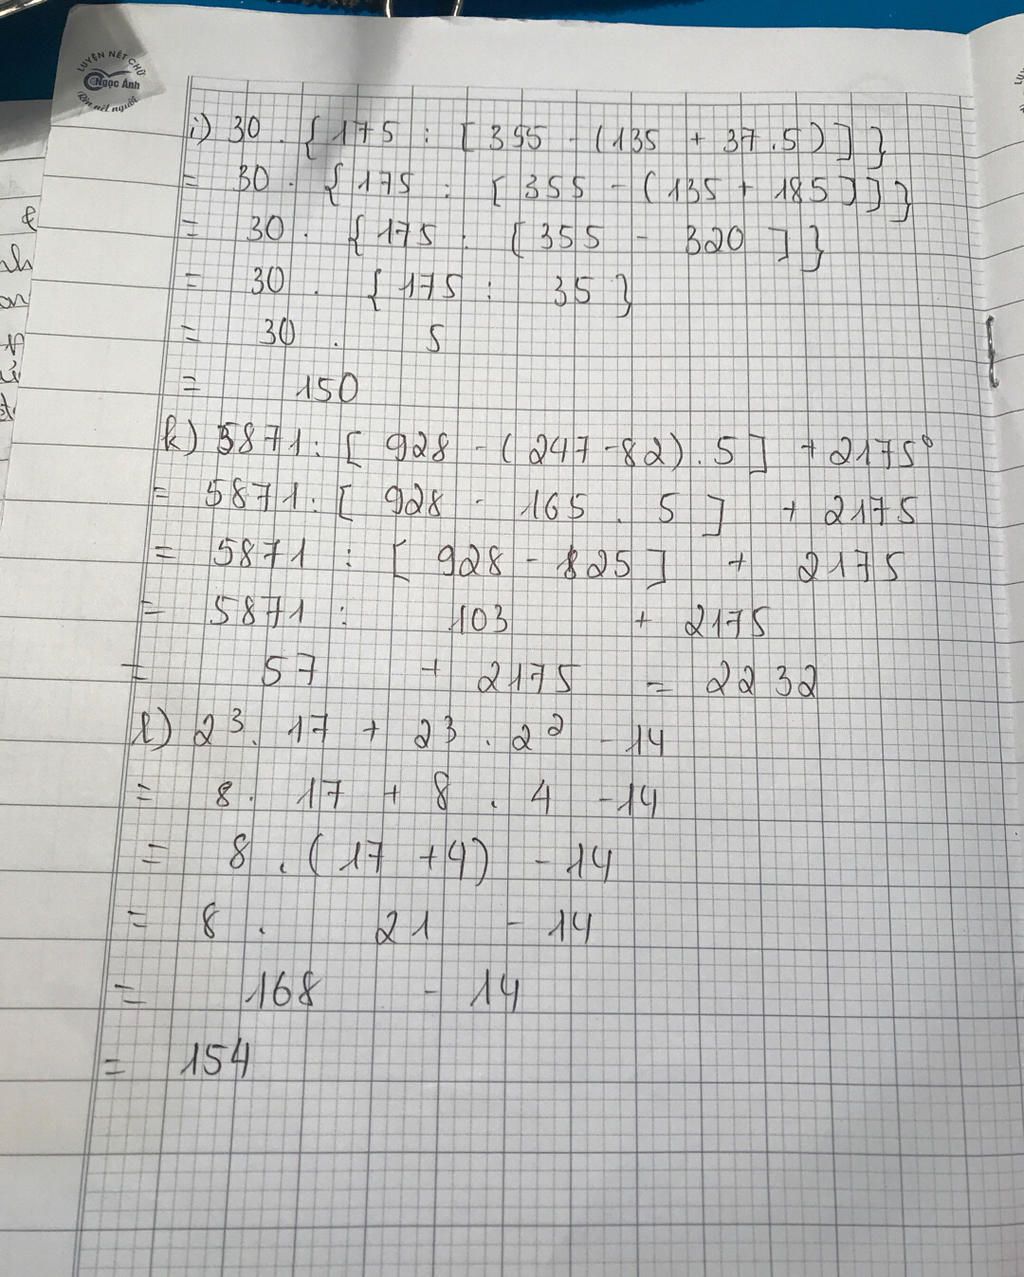 LUYỆN NÉT CHỮ
Ngọc Ánh
Rèn nết người
i) 30 . { 175 : [ 355 - (135 + 37 . 5 ) ] }
= 30 . { 175 : [ 355 - ( 135 + 185 ] ] }
= 30 . { 175 : [ 355 - 320 ] }
= 30 . { 175 : 35 }
= 30 . 5
= 150
k) 5871 : [ 928 - ( 247 - 82 ) . 5 ] + 2175⁰
= 5871 : [ 928 - 165 . 5 ] + 2175
= 5871 : [ 928 - 825 ] + 2175
= 5871 : 103 + 2175
= 57 + 2175 = 2232
l) 2³ . 17 + 2³ . 2² - 14
= 8 . 17 + 8 . 4 - 14
= 8 . ( 17 + 4 ) - 14
= 8 . 21 - 14
= 168 - 14
= 154